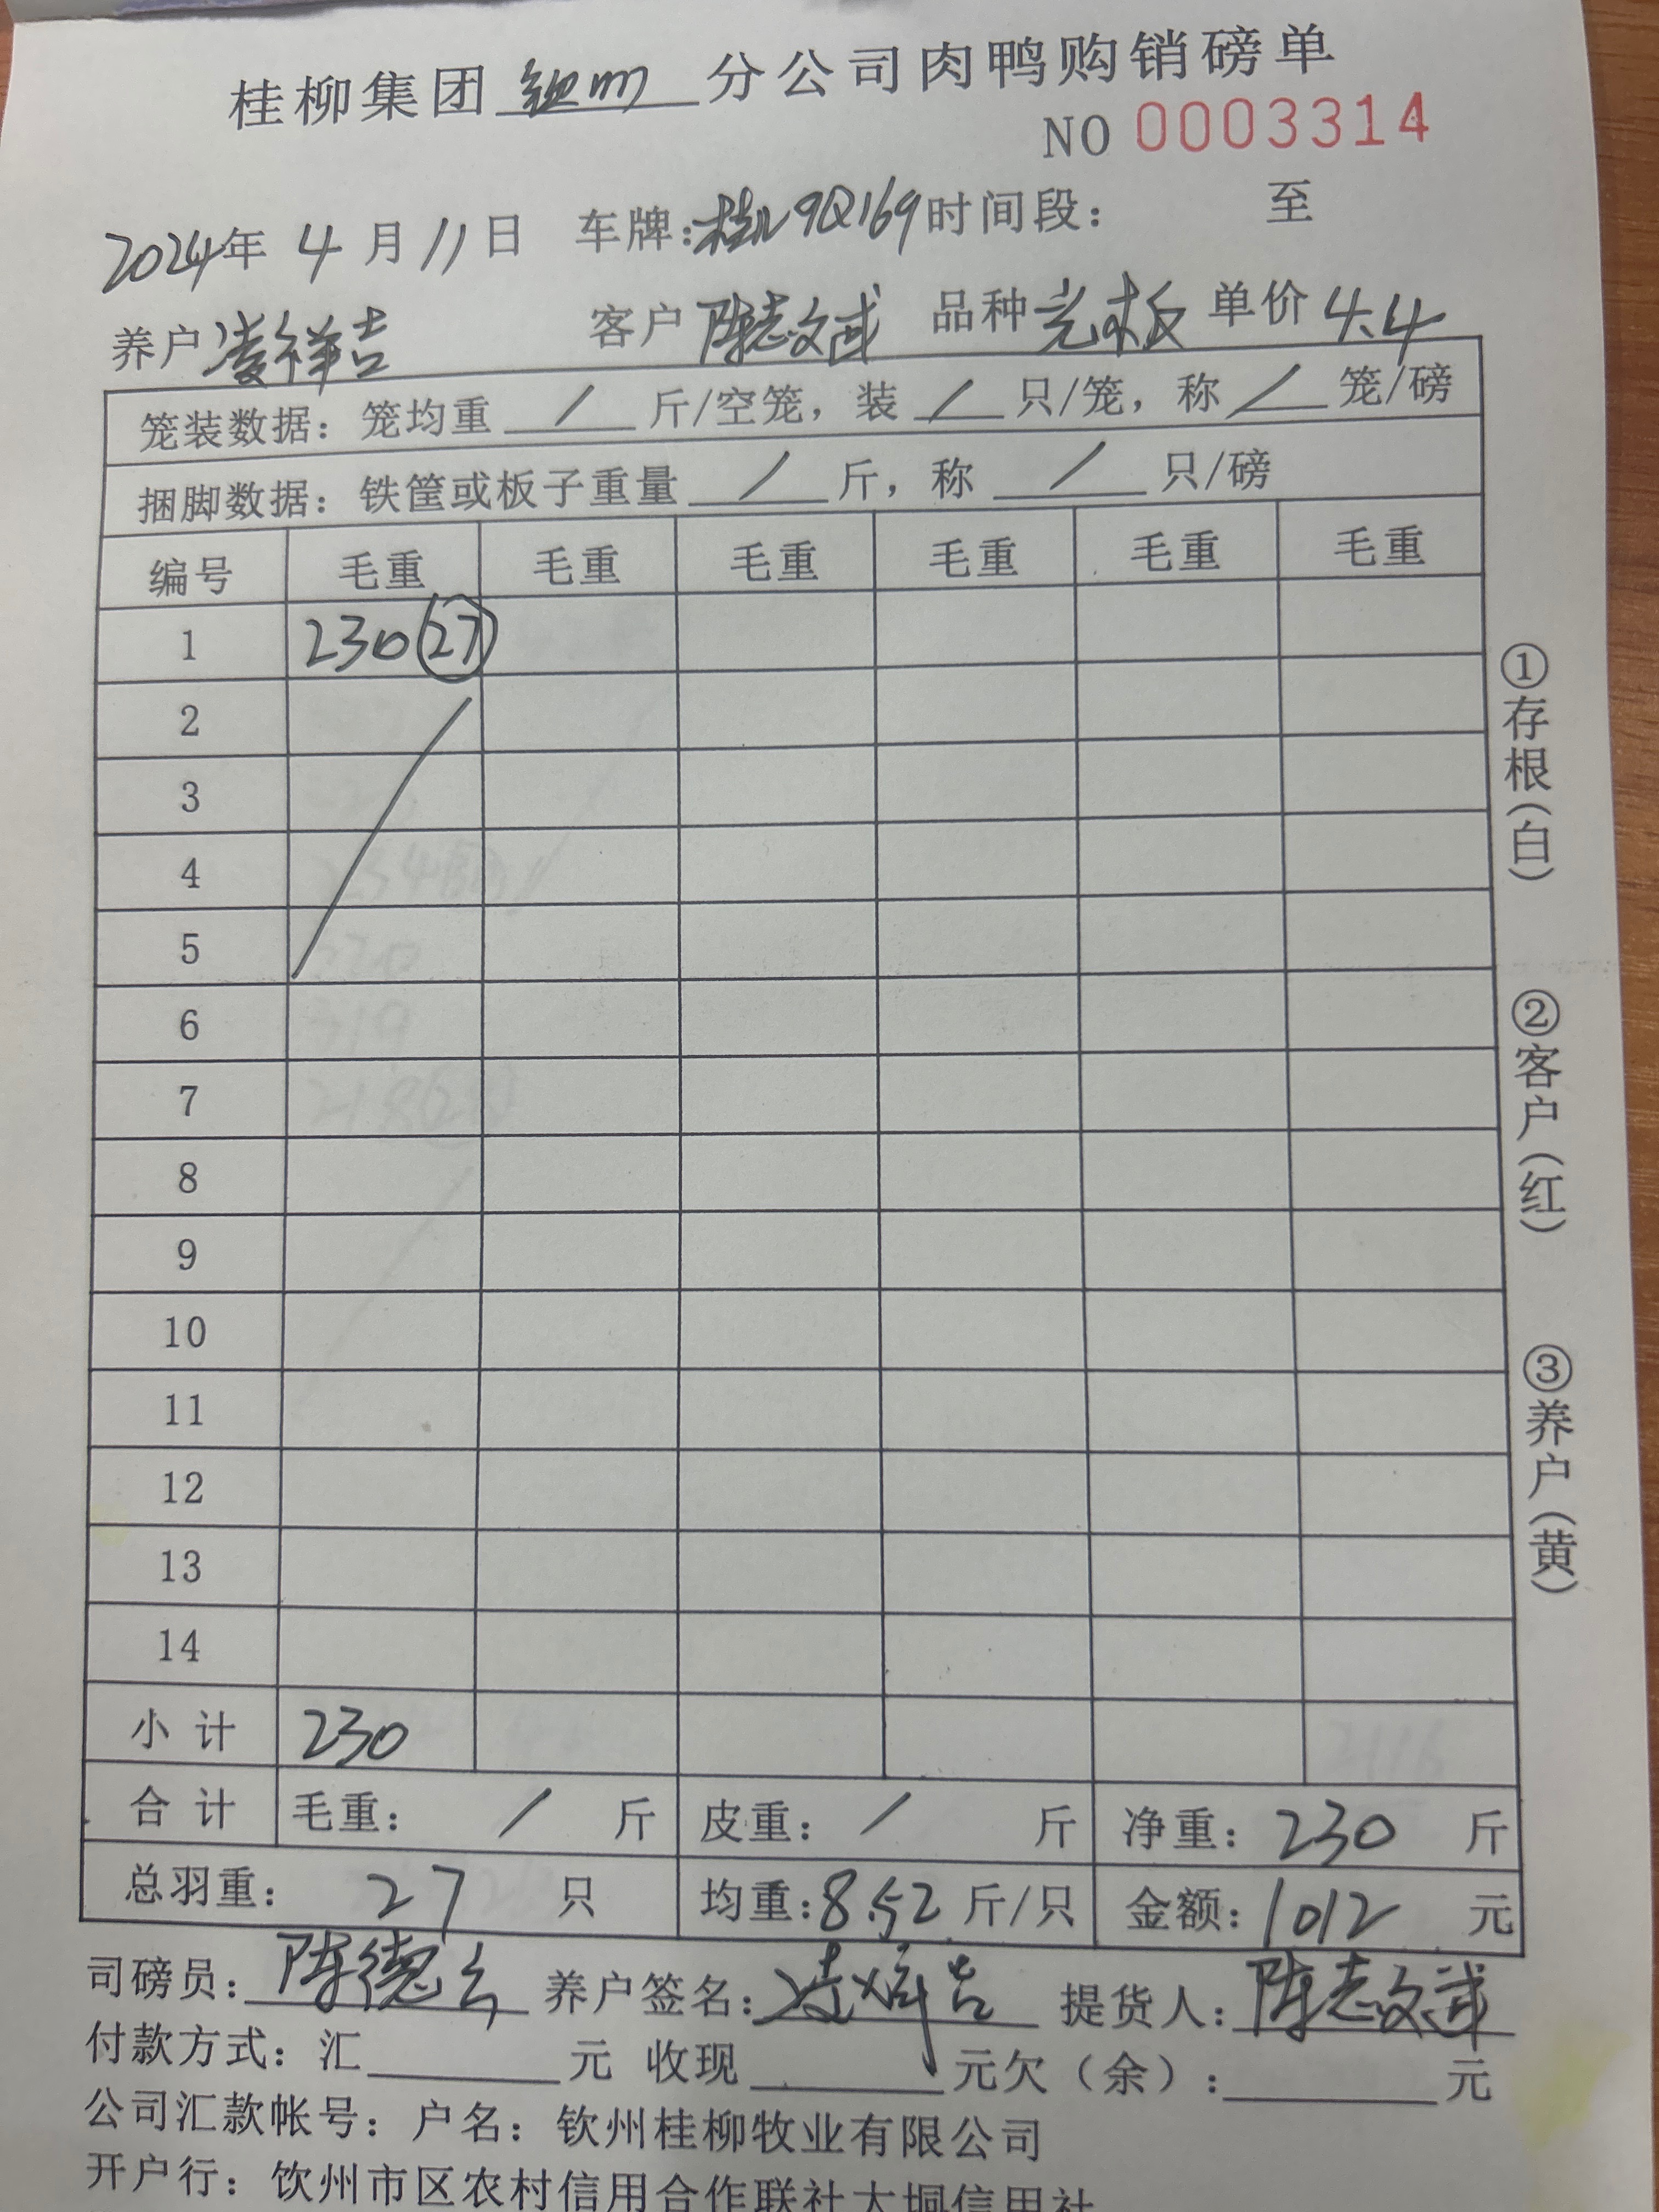 桂柳集团 钦州 分公司肉鸭购销磅单
NO 0003314
2024年 4 月 11 日 车牌:桂N9Q169 时间段: 至
养户 凌祥吉 客户 陈志文武 品种 光板 单价 4.4
笼装数据:笼均重 / 斤/空笼,装 / 只/笼,称 / 笼/磅
捆脚数据:铁筐或板子重量 / 斤,称 / 只/磅
编号 毛重 毛重 毛重 毛重 毛重 毛重
1 230 27
2
3
4
5
6
7
8
9
10
11
12
13
14
小计 230
合计 毛重: / 斤 皮重: / 斤 净重: 230 斤
总羽重: 27 只 均重:8.52 斤/只 金额:1012 元
司磅员:陈德 养户签名:凌祥吉 提货人:陈志文武
付款方式:汇 元 收现 元欠(余): 元
公司汇款帐号:户名:钦州桂柳牧业有限公司
开户行:钦州市区农村信用合作联社大垌信用社
①存根(白)
②客户(红)
③养户(黄)